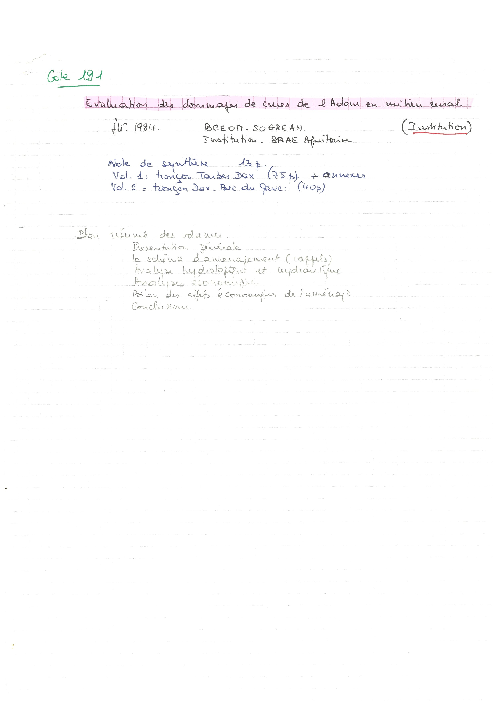 Cote 191
Evaluation des dommages de crues de l'Adour en milieu rural
fév. 1984. BCEOM - SOGREAH (Institution)
Institution - SRAE Aquitaine
Note de synthèse 17 p.
Vol. 1: tronçon Tarbes Dax (75 p) + annexes
Vol. 2 = tronçon Dax - Bec du Gave: (40p)
résumé des
Présentation générale
le schéma d'aménagement (rappels)
Analyse hydrologique et hydraulique
Analyse économique
des effets économiques de l'aménagt
Conclusion